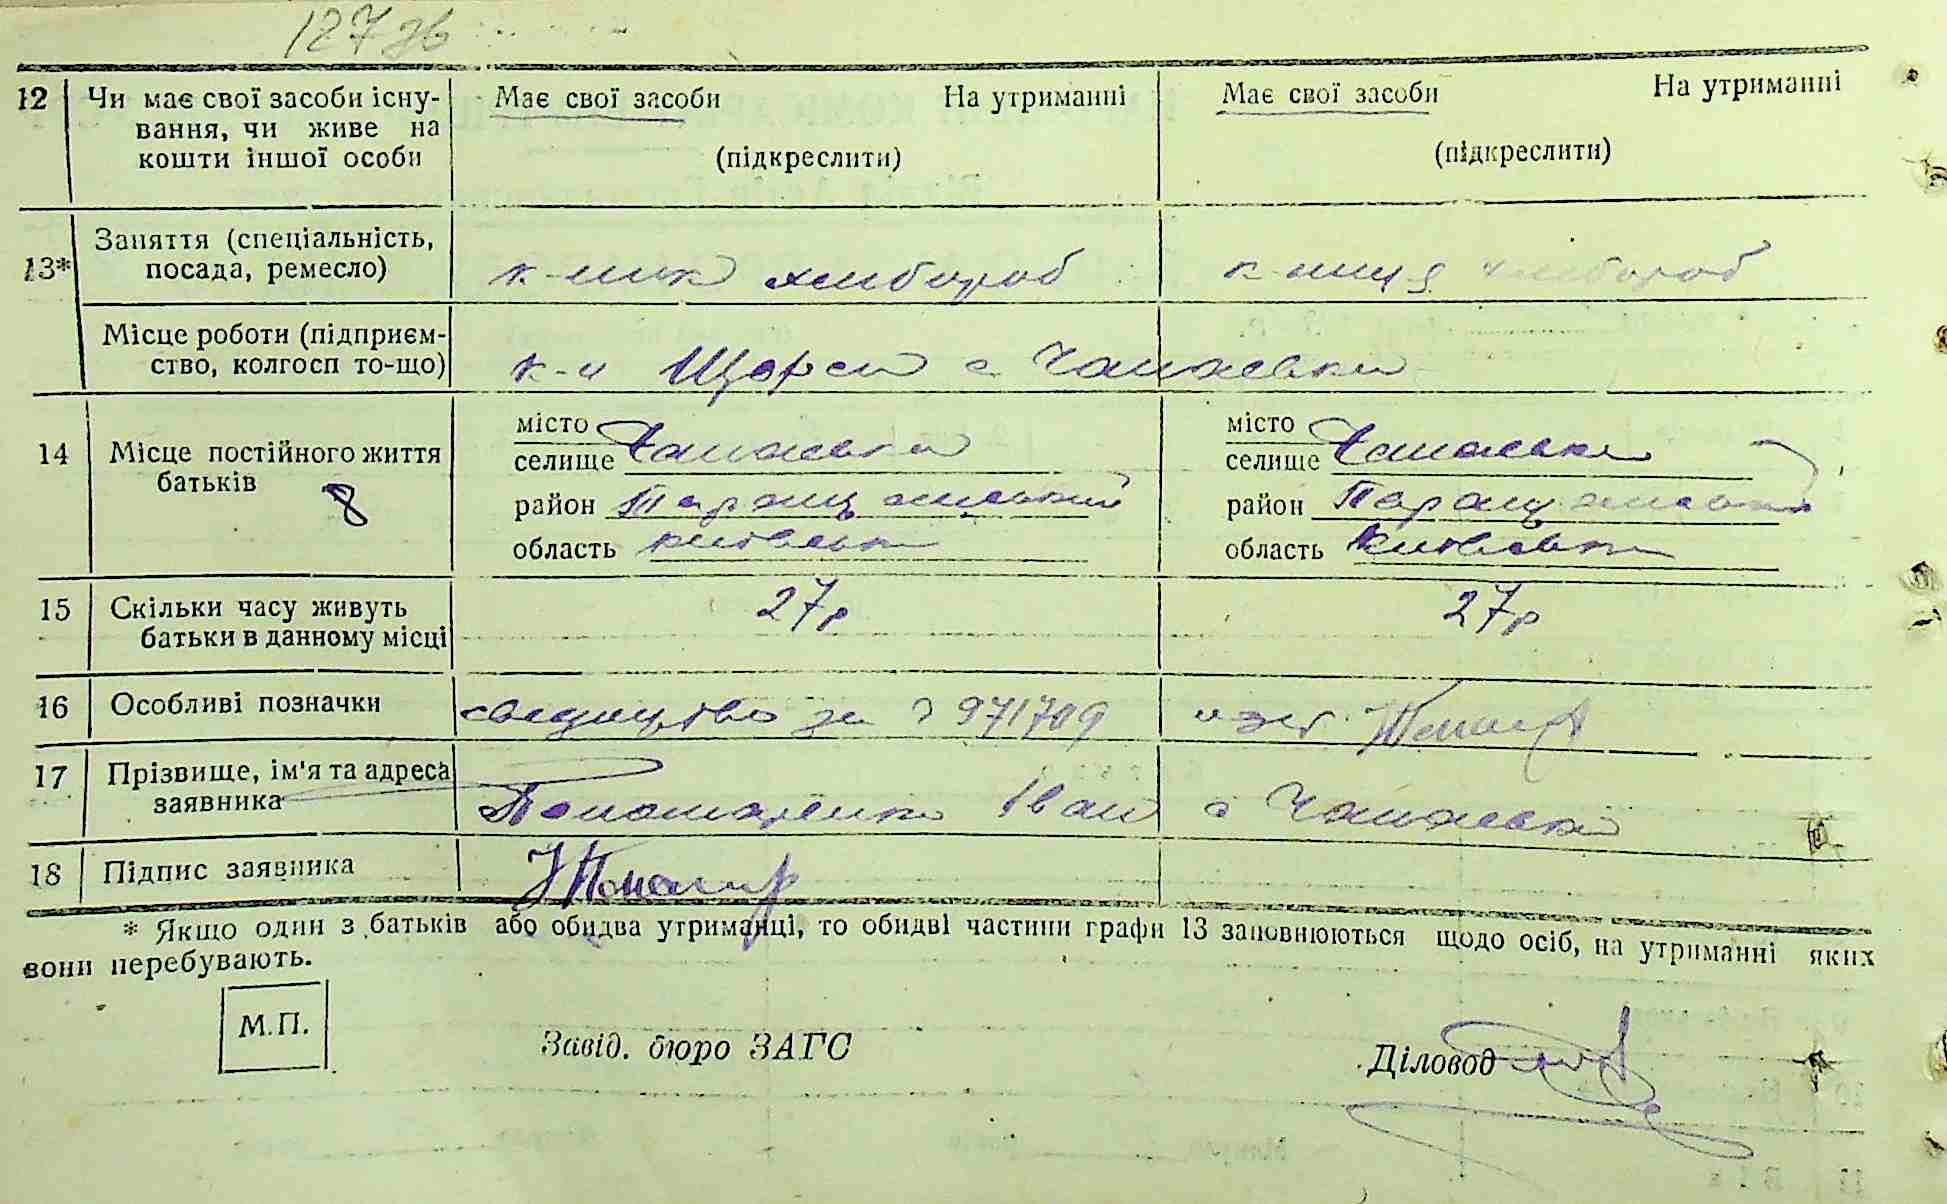 127 зв
12 Чи має свої засоби існу- Має свої засоби На утриманні Має свої засоби На утриманні
вання, чи живе на
кошти іншої особи (підкреслити) (підкреслити)
13* Заняття (спеціальність,
посада, ремесло) к-ник хлібороб к-ниця хлібороб
Місце роботи (підприєм-
ство, колгосп то-що) к-п Щорса с
місто місто
14 Місце постійного життя селище селище
батьків 8 район район
область київська область Київська
15 Скільки часу живуть 27 р 27 р
батьки в данному місці
16 Особливі позначки за 971709
17 Прізвище, ім'я та адреса
заявника Пономаренко Іван с
18 Підпис заявника
* Якщо один з батьків або обидва утриманці, то обидві частини графи 13 заповнюються щодо осіб, на утриманні яких
вони перебувають.
М.П.
Завід. бюро ЗАГС Діловод